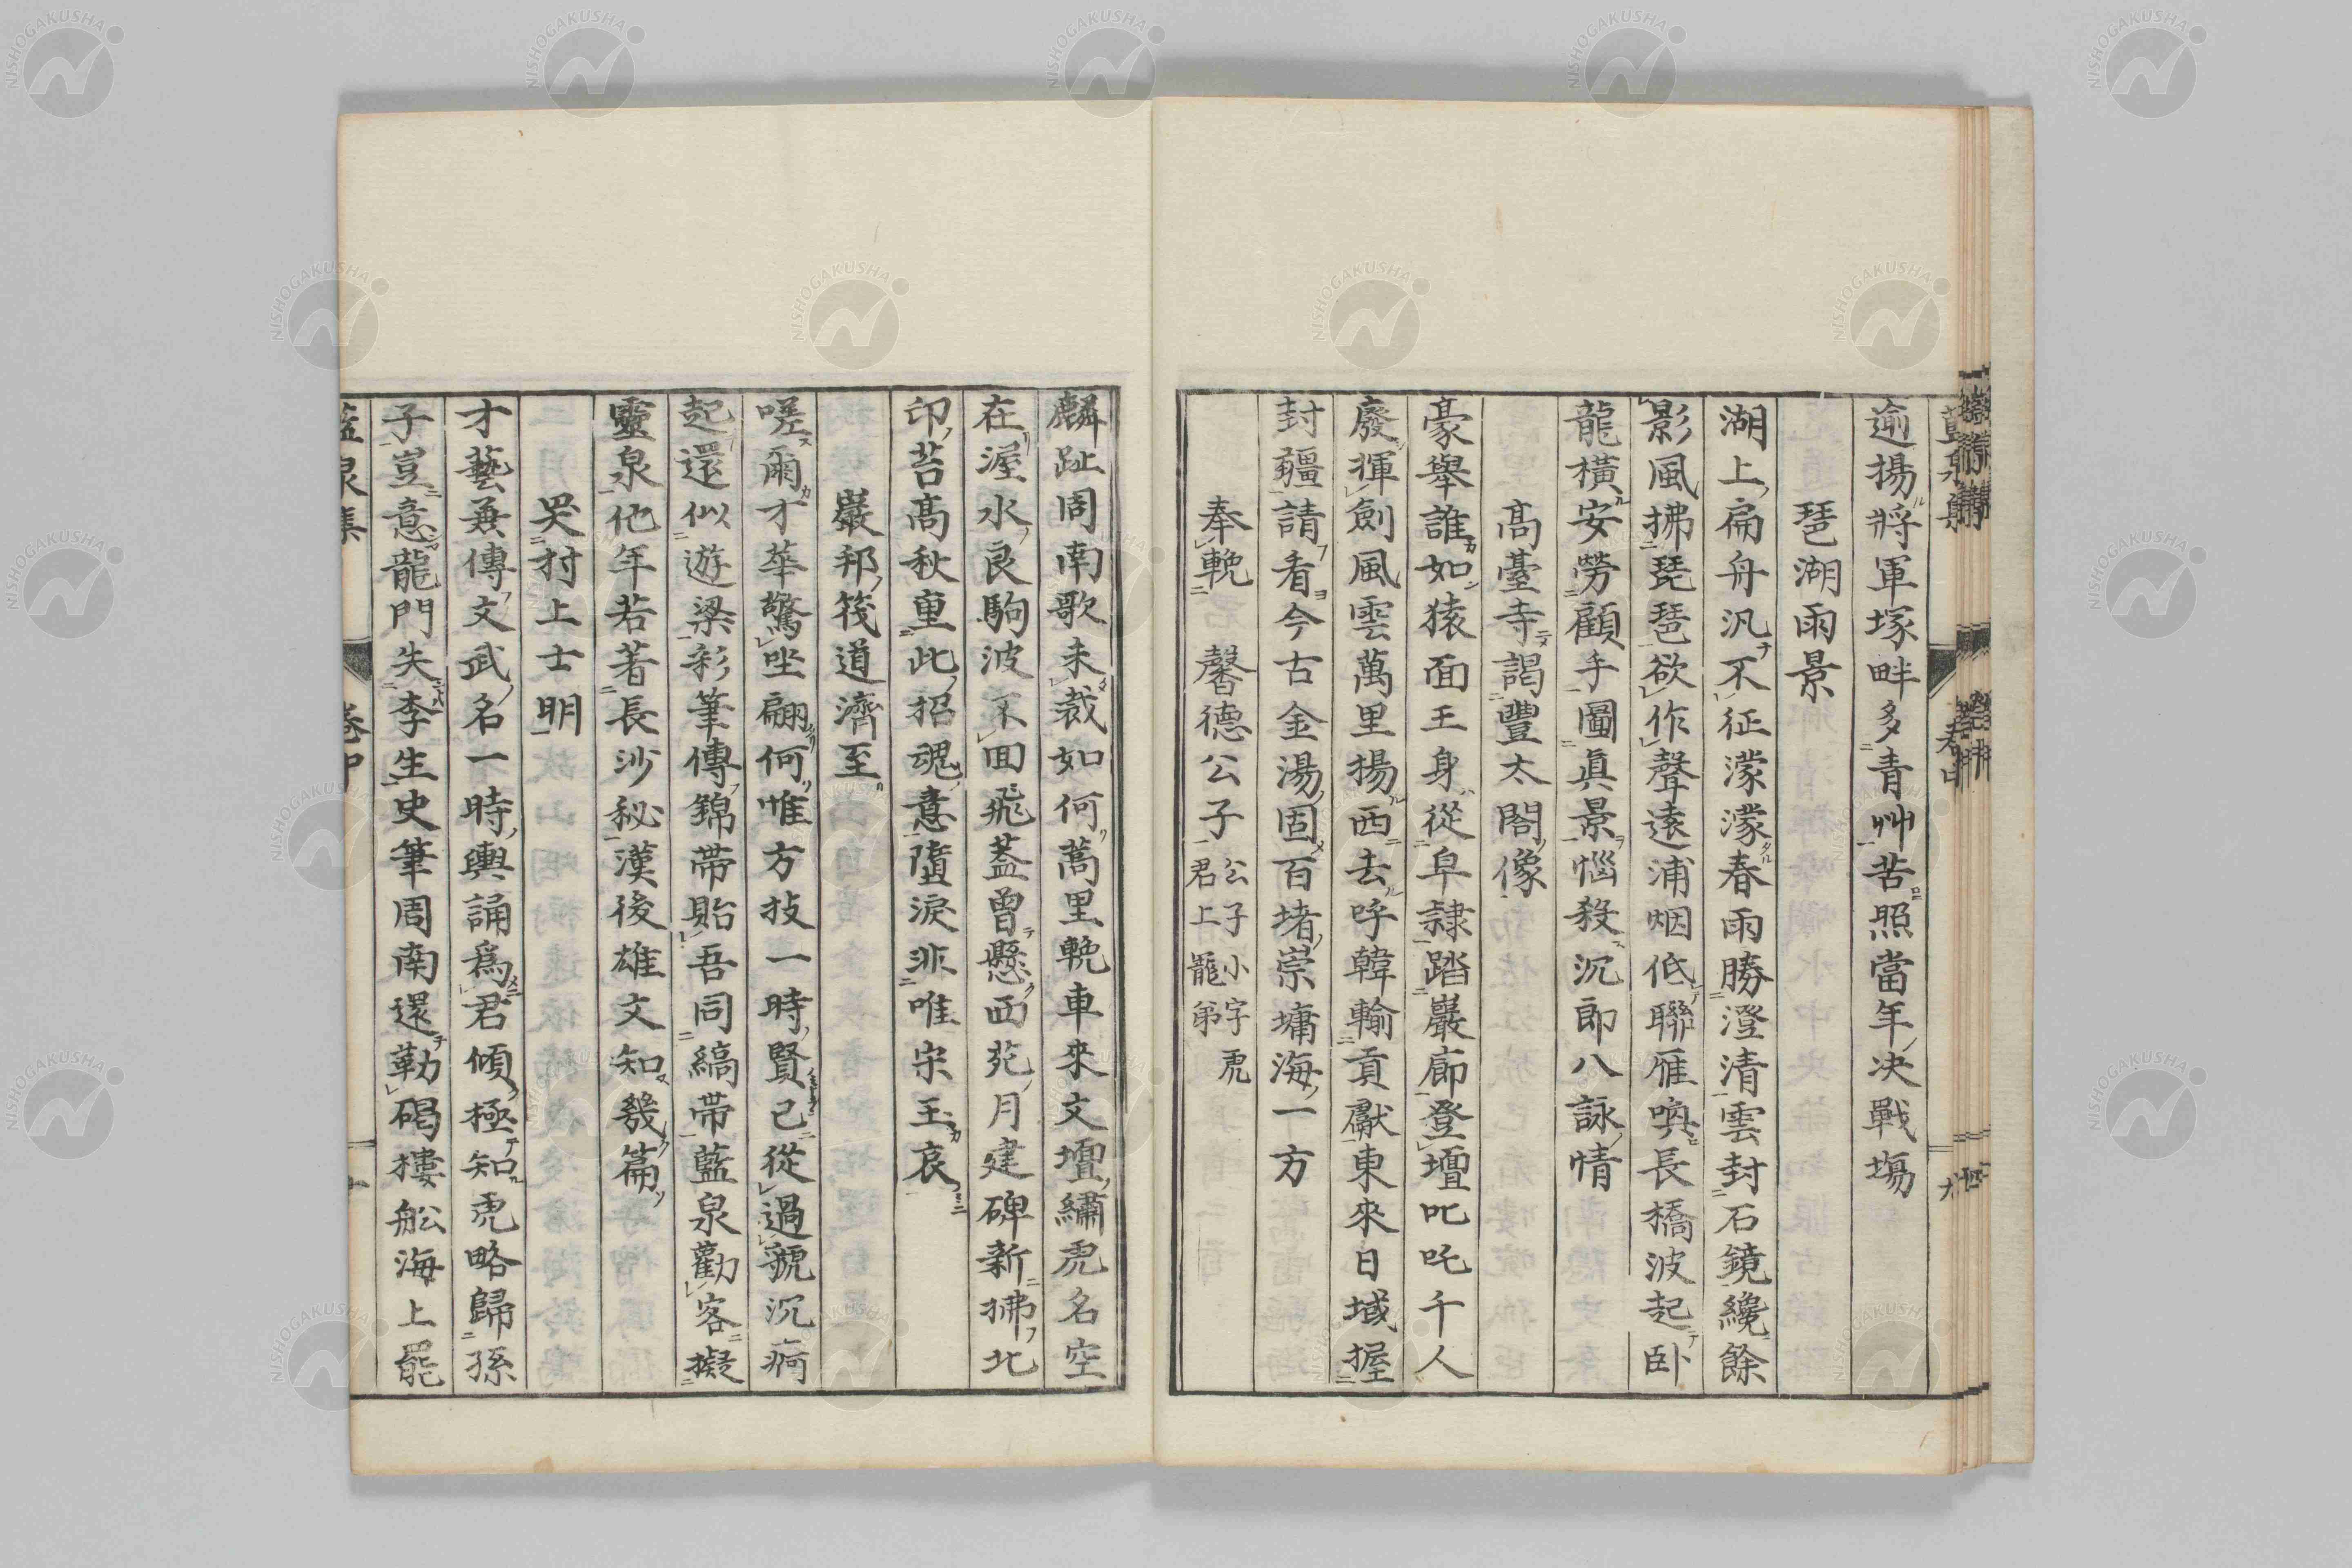 逾揚將軍塚畔多青艸苦照當年決戰塲
琵湖雨景
湖上扁舟汎不征濛濛春雨勝澄清雲封石鏡纔餘
影風拂琵琶欲作聲遠浦烟低聯雁喚長橋波起臥
龍橫安勞顧手圖眞景惱殺沉郎八詠情
高臺寺謁豐太閤像
豪舉誰如猿面王身從皁隷踏巖廊登壇叱吒千人
廢揮劍風雲萬里揚西去呼韓輸貢獻東來日域握
封疆請看今古金湯固百堵崇墉海一方
奉輓 馨德公子 公子小字虎
君上罷弟
麟趾周南歌未裁如何蒿里輓車來文壇繡虎名空
在渥水良駒波不回飛葢曾懸西苑月建碑新拂北
卬苔高秋重此招魂意墮淚非唯宋玉哀
巖邦筏道濟至
嗟爾才華驚坐翩何惟方技一時賢已從過虢沉痾
起還似遊梁彩筆傳錦帶貽吾同縞帶藍泉勸客擬
靈泉他年若著長沙秘漢後雄文知幾篇
哭村上士明
才藝兼傳文武名一時輿誦爲君傾極知虎略歸孫
子豈意龍門失李生史筆周南還勒碣樓舩海上罷
藍泉集 卷中
NISHOGAKUSHA